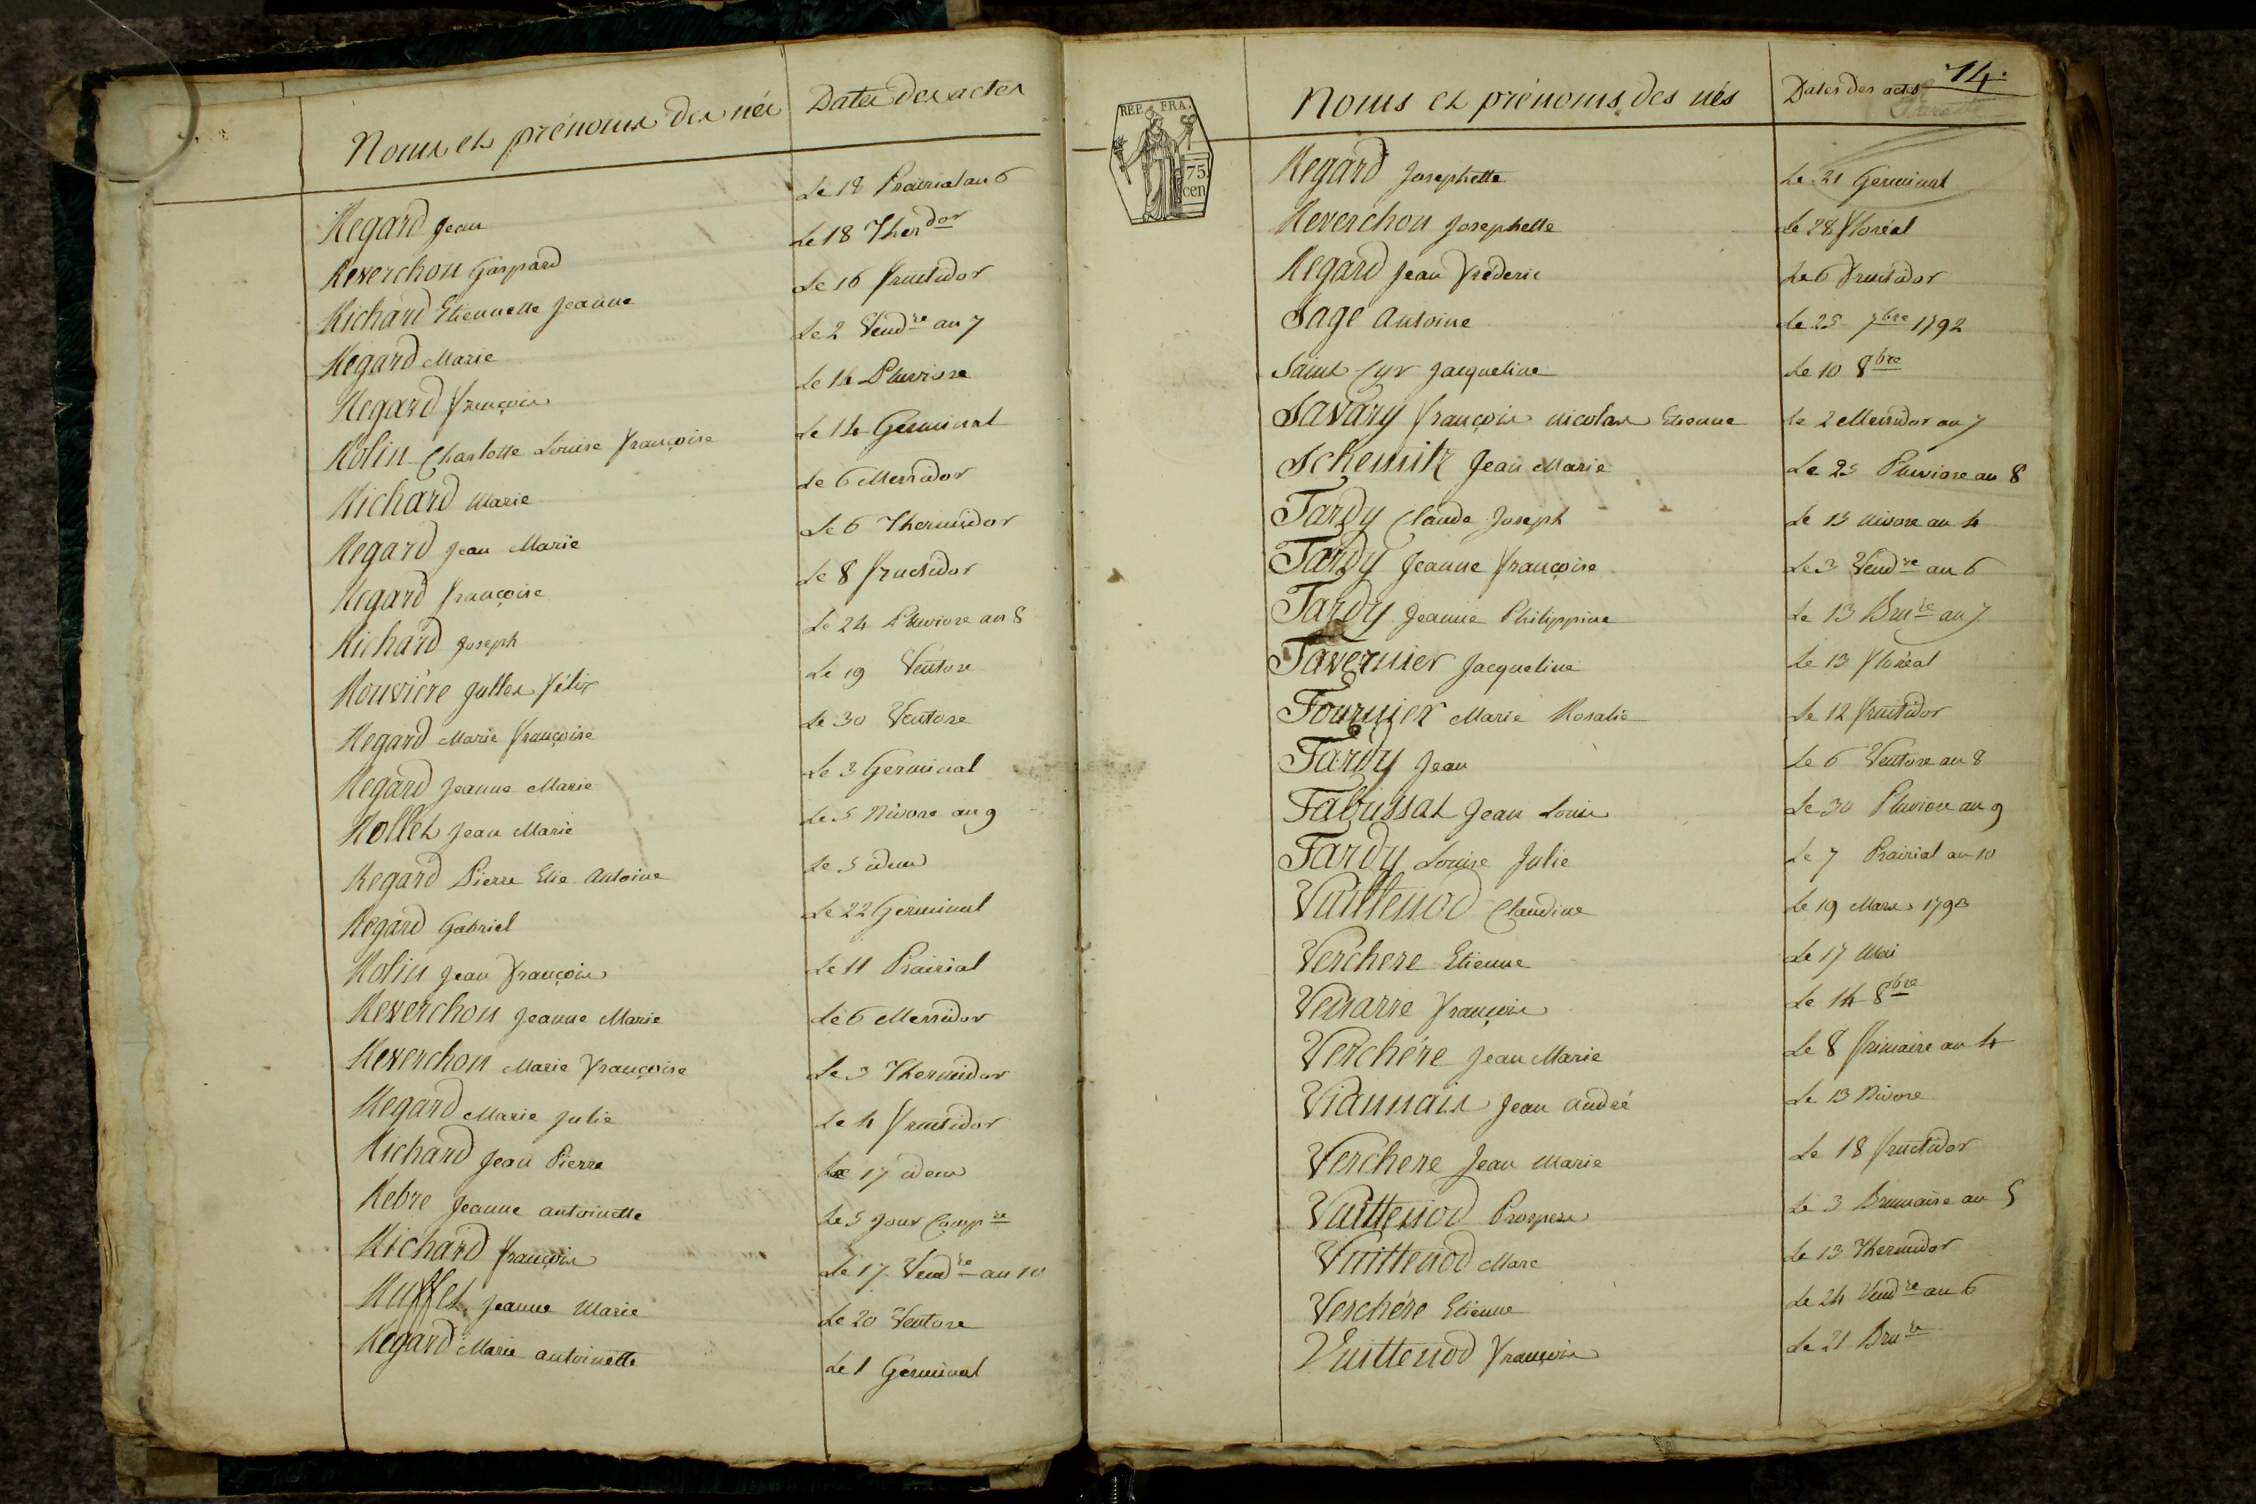 Noms et prénoms des nés Dates des actes
Regard Jean Le 18 Prairial an 6
Reverchon Gaspard Le 18 Therdor
Richard Etiennette Jeanne Le 16 fructidor
Regard Marie Le 2 Vendre an 7
Regard françois Le 14 Pluviose
Rolin Charlotte Louise françoise Le 14 Germinal
Richard Marie Le 6 Messidor
Regard Jean Marie Le 6 Thermidor
Regard françoise Le 8 fructidor
Richard Joseph Le 24 Pluviose an 8
Rouviére Julles félix Le 19 Ventose
Regard Marie françoise Le 30 Ventose
Regard Jeanne Marie Le 3 Germinal
Rollet Jean Marie Le 5 Nivose an 9
Regard Pierre Elie Antoine Le 5 idem
Regard Gabriel Le 22 Germinal
Rolin Jean françois Le 11 Prairial
Reverchon Jeanne Marie Le 6 Messidor
Reverchon Marie françoise Le 3 Thermidor
Regard Marie Julie Le 4 fructidor
Richard Jean Pierre Le 17 idem
Rebre Jeanne antoinette Le 5 Jour Compre
Richard françois Le 17 Vendre an 10
Ruffet Jeanne Marie Le 20 Ventose
Regard Marie antoinette Le 1 Germinal
14.
REP. FRA.
75
cen
Noms et prénoms des nés Dates des actes
Regard Josephette Le 21 Germinal
Reverchon Josephette Le 28 floréal
Regard Jean fréderic Le 6 fructidor
Sage Antoine Le 25 7bre 1792
Saint Cyr Jacqueline Le 10 8bre
Savary françois nicolas Etienne Le 2 Messidor an 7
Schemitz Jean Marie Le 25 Pluviose an 8
Tardy Claude Joseph Le 13 nivose an 4
Tardy Jeanne françoise Le 3 Vendre an 6
Tardy Jeanne Philippine Le 13 Brure an 7
Tavernier Jacqueline Le 13 floréal
Fournier Marie Rosalie Le 12 fructidor
Tardy Jean Le 6 Ventose an 8
Tabussat Jean Louis Le 30 Pluviose an 9
Tardy Louise Julie Le 7 Prairial an 10
Vuittenod Claudine Le 19 Mars 1793
Verchere Etienne Le 17 Mai
françois Le 14 8bre
Verchére Jean Marie Le 8 frimaire an 4
Viannais Jean André Le 13 Nivose
Verchere Jean Marie Le 18 fructidor
Vuittenod Prosper Le 3 Brumaire an 5
Vuittenod Marc Le 13 Thermidor
Verchére Etienne Le 24 Vendre an 6
Vuittenod françois Le 21 Brure